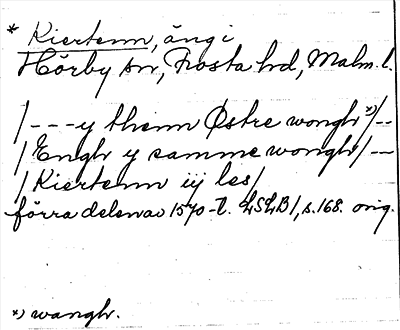 * Kiertenn, äng i
Hörby sn, Frosta hd, Malm. l.
/---y thenn Østre wongh *)/--
/Engh y samme wongh/--
/Kiertenn iij les/
förra delen av 1570-t. LSLB1, s.168. orig.
*) wangh.